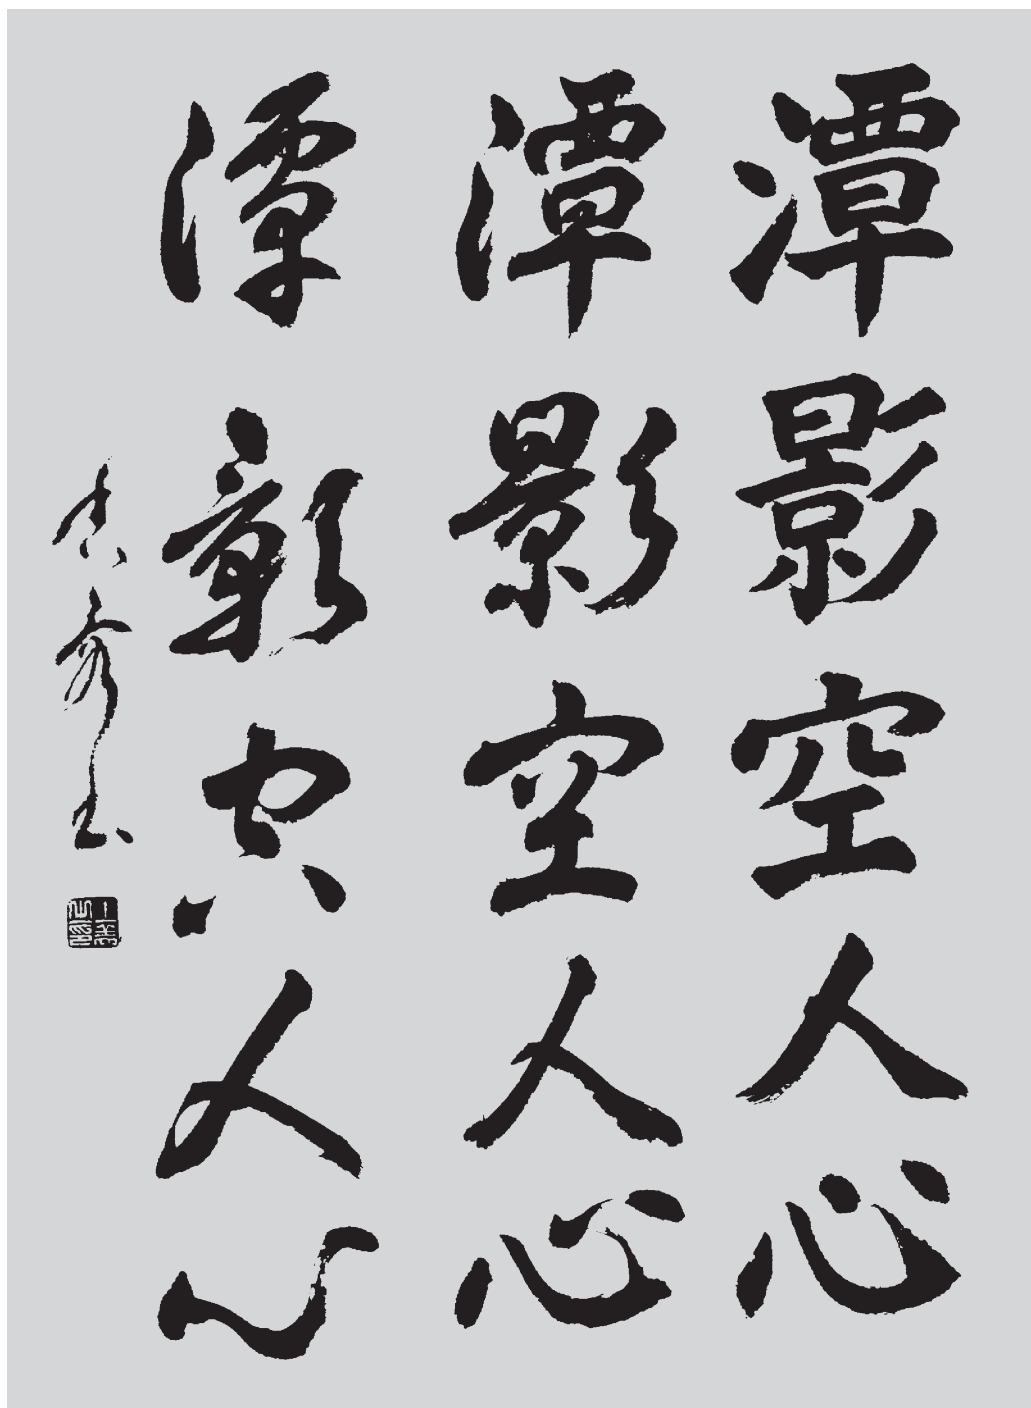 潭影空人心
潭影空人心
潭影空人心